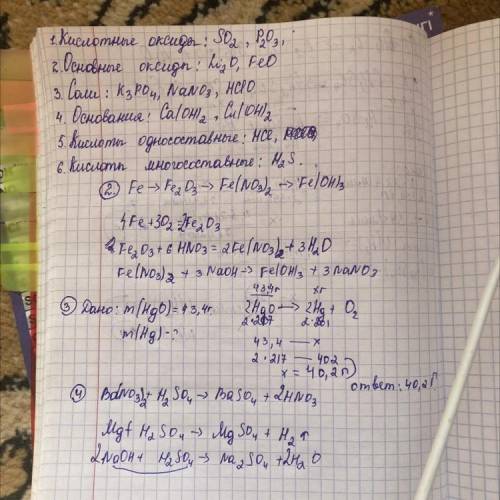 1. Кислотные оксиды: SO₂, P₂O₃,
2. Основные оксиды: Li₂O, FeO
3. Соли: K₃PO₄, NaNO₃, HClO
4. Основания: Ca(OH)₂, Cu(OH)₂
5. Кислоты односоставные: HCl,
6. Кислоты многосоставные: H₂S.
② Fe → Fe₂O₃ → Fe(NO₃)₂ → Fe(OH)₃
4Fe + 3O₂ = 2Fe₂O₃
Fe₂O₃ + 6HNO₃ = 2Fe(NO₃)₂ + 3H₂O
Fe(NO₃)₂ + 3NaOH → Fe(OH)₃ + 3NaNO₃
43,4г xг
③ Дано: m(HgO) = 43,4г 2HgO → 2Hg + O₂
m(Hg) - ? 2·217 2·201
43,4 — x
2·217 — 402
x = 40,2г)
ответ: 40,2г
④ Ba(NO₃)₂ + H₂SO₄ → BaSO₄ + 2HNO₃
Mg + H₂SO₄ → MgSO₄ + H₂↑
2NaOH + H₂SO₄ → Na₂SO₄ + 2H₂O